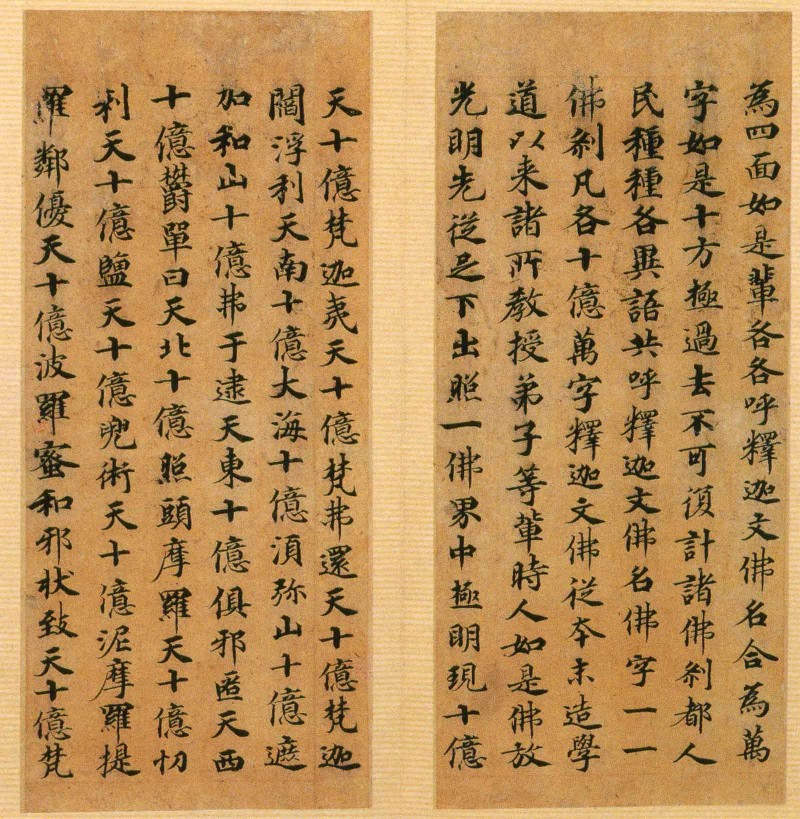 為四面如是輩各各呼釋迦文佛名合為萬
字如是十方極過去不可復計諸佛剎都人
民種種各異語共呼釋迦文佛名佛字一一
佛剎凡各十億萬字釋迦文佛從本末造學
道以来諸所教授弟子等輩時人如是佛放
光明先從足下出照一佛界中極明現十億
天十億梵迦夷天十億梵弗還天十億梵迦
閻浮利天南十億大海十億須弥山十億遮
加和山十億弗于逮天東十億俱邪匿天西
十億欝單曰天北十億照頭摩羅天十億忉
利天十億鹽天十億兜術天十億泥摩羅提
羅鄰優天十億波羅蜜和邪狀致天十億梵